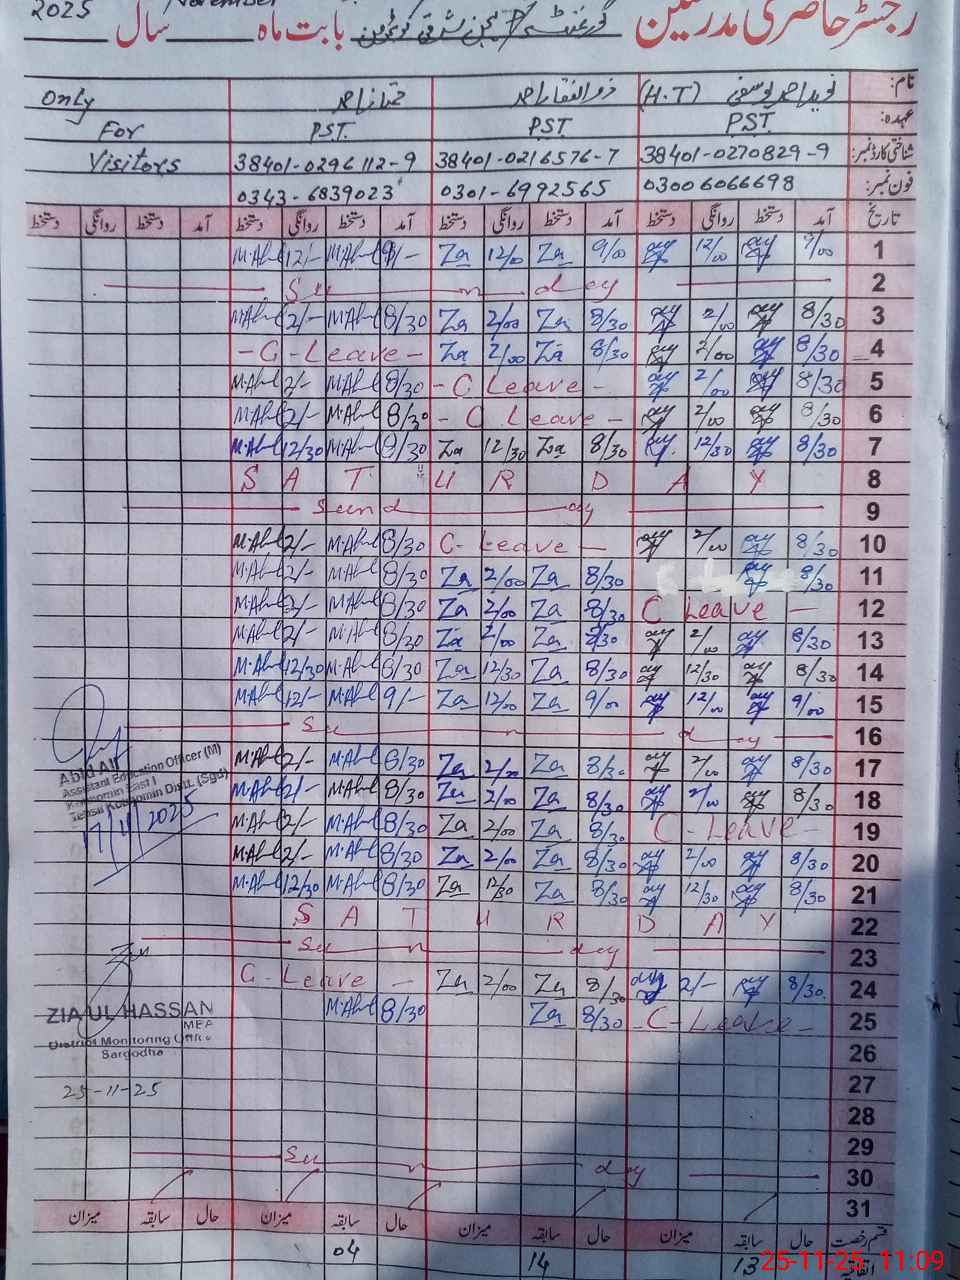 رجسٹر حاضری مدرسین بابت ماہ November سال 2025
نام: نوید احمد یوسفی (H.T) ذوالفقار احمد ممتاز احمد Only
عہدہ: PST PST PST. For
شناختی کارڈ نمبر: 38401-0270829-9 38401-0216576-7 38401-0296112-9 Visitors
فون نمبر: 03006066698 0301-6992565 0343-6839023
تاریخ آمد دستخط روانگی دستخط آمد دستخط روانگی دستخط آمد دستخط روانگی دستخط آمد دستخط روانگی دستخط
1 9/00 12/00 9/00 Za 12/00 Za 9/- M.Ahmed 12/- M.Ahmed
2 Sunday
3 8/30 2/00 8/30 Za 2/00 Za 8/30 M.Ahmed 2/- M.Ahmed
4 8/30 2/00 8/30 Za 2/00 Za -C-Leave-
5 8/30 2/00 -C Leave- 8/30 M.Ahmed 2/- M.Ahmed
6 8/30 2/00 -C Leave- 8/30 M.Ahmed 2/- M.Ahmed
7 8/30 12/30 8/30 Za 12/30 Za 8/30 M.Ahmed 12/30 M.Ahmed
8 SATURDAY
9 Sunday
10 8/30 2/00 C-Leave- 8/30 M.Ahmed 2/- M.Ahmed
11 8/30 8/30 Za 2/00 Za 8/30 M.Ahmed 2/- M.Ahmed
12 C Leave- 8/30 Za 2/00 Za 8/30 M.Ahmed 2/- M.Ahmed
13 8/30 2/00 8/30 Za 2/00 Za 8/30 M.Ahmed 2/- M.Ahmed
14 8/30 12/30 8/30 Za 12/30 Za 8/30 M.Ahmed 12/30 M.Ahmed
15 9/00 12/00 9/00 Za 12/00 Za 9/- M.Ahmed 12/- M.Ahmed
16 Sunday
17 8/30 2/00 8/30 Za 2/00 Za 8/30 M.Ahmed 2/- M.Ahmed
18 8/30 2/00 8/30 Za 2/00 Za 8/30 M.Ahmed 2/- M.Ahmed
19 C-Leave- 8/30 Za 2/00 Za 8/30 M.Ahmed 2/- M.Ahmed
20 8/30 2/00 8/30 Za 2/00 Za 8/30 M.Ahmed 2/- M.Ahmed
21 8/30 12/30 8/30 Za 12/30 Za 8/30 M.Ahmed 12/30 M.Ahmed
22 SATURDAY
23 Sunday
24 8/30 2/- 8/30 Za 2/00 Za C-Leave-
25 C-Leave- 8/30 Za 8/30 M.Ahmed
26
27
28
29
30 Sunday
31
Abid Ali
Assistant Education Officer (M)
Kotmomin East I
Tehsil Kotmomin Distt. (Sgd)
17/11/2025
ZIA UL HASSAN
MEA
District Monitoring Office
Sargodha
25-11-25
قسم رخصت حال سابقہ میزان حال سابقہ میزان حال سابقہ میزان حال سابقہ میزان
13 14 04
25-11-25 11:09